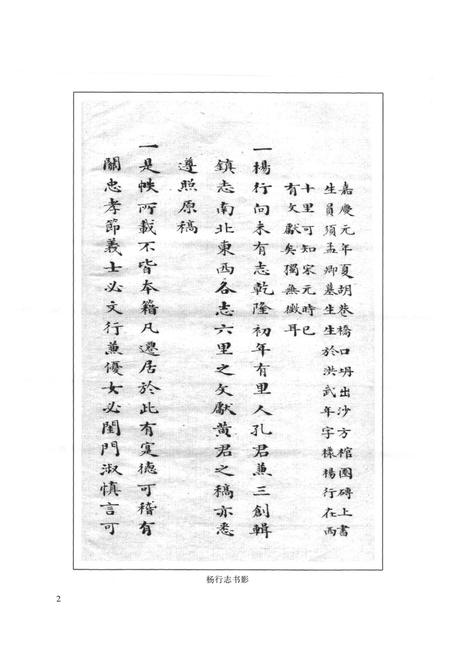 嘉慶元年夏胡巷橋口坍出沙方棺圍磚上書
生員須孟卿墓生生於洪武年字樣楊行在西
十里可知宋元時已
有文獻矣獨無徵耳
一楊行向未有志乾隆初年有里人孔君兼三創輯
鎮志南北東西各志六里之文獻黃君之稿亦悉
遵照原稿
一是帙所載不皆本籍凡遷居於此有寔德可稽有
關忠孝節義士必文行兼優女必閨門淑慎言可
杨行志书影
2